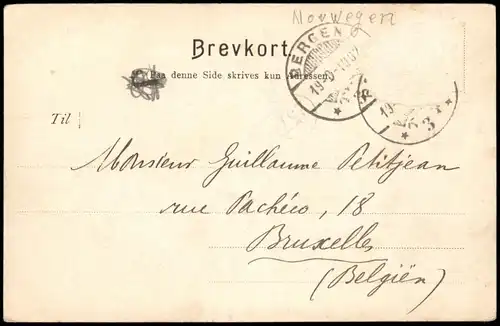 Norwegen
Brevkort.
Paa denne Side skrives kun Adressen.
BERGEN
Til
Monsieur Guillaume Petitjean
rue Pachéco, 18
Bruxelles
(Belgiën)
3